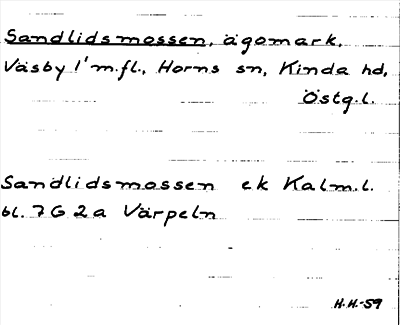 Sandlidsmossen, ägomark,
Väsby 1' m.fl., Horns sn, Kinda hd,
Östg.l.
Sandlidsmossen ek Kalm.l.
bl. 7 G 2 a Värpeln
H.H.-59